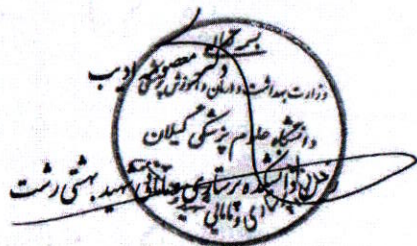 بسمه تعالی
دکتر معصومه ادیب
وزارت بهداشت و درمان و آموزش پزشکی
دانشگاه علوم پزشکی گیلان
دانشکده پرستاری مامائی شهید بهشتی رشت
و مامایی